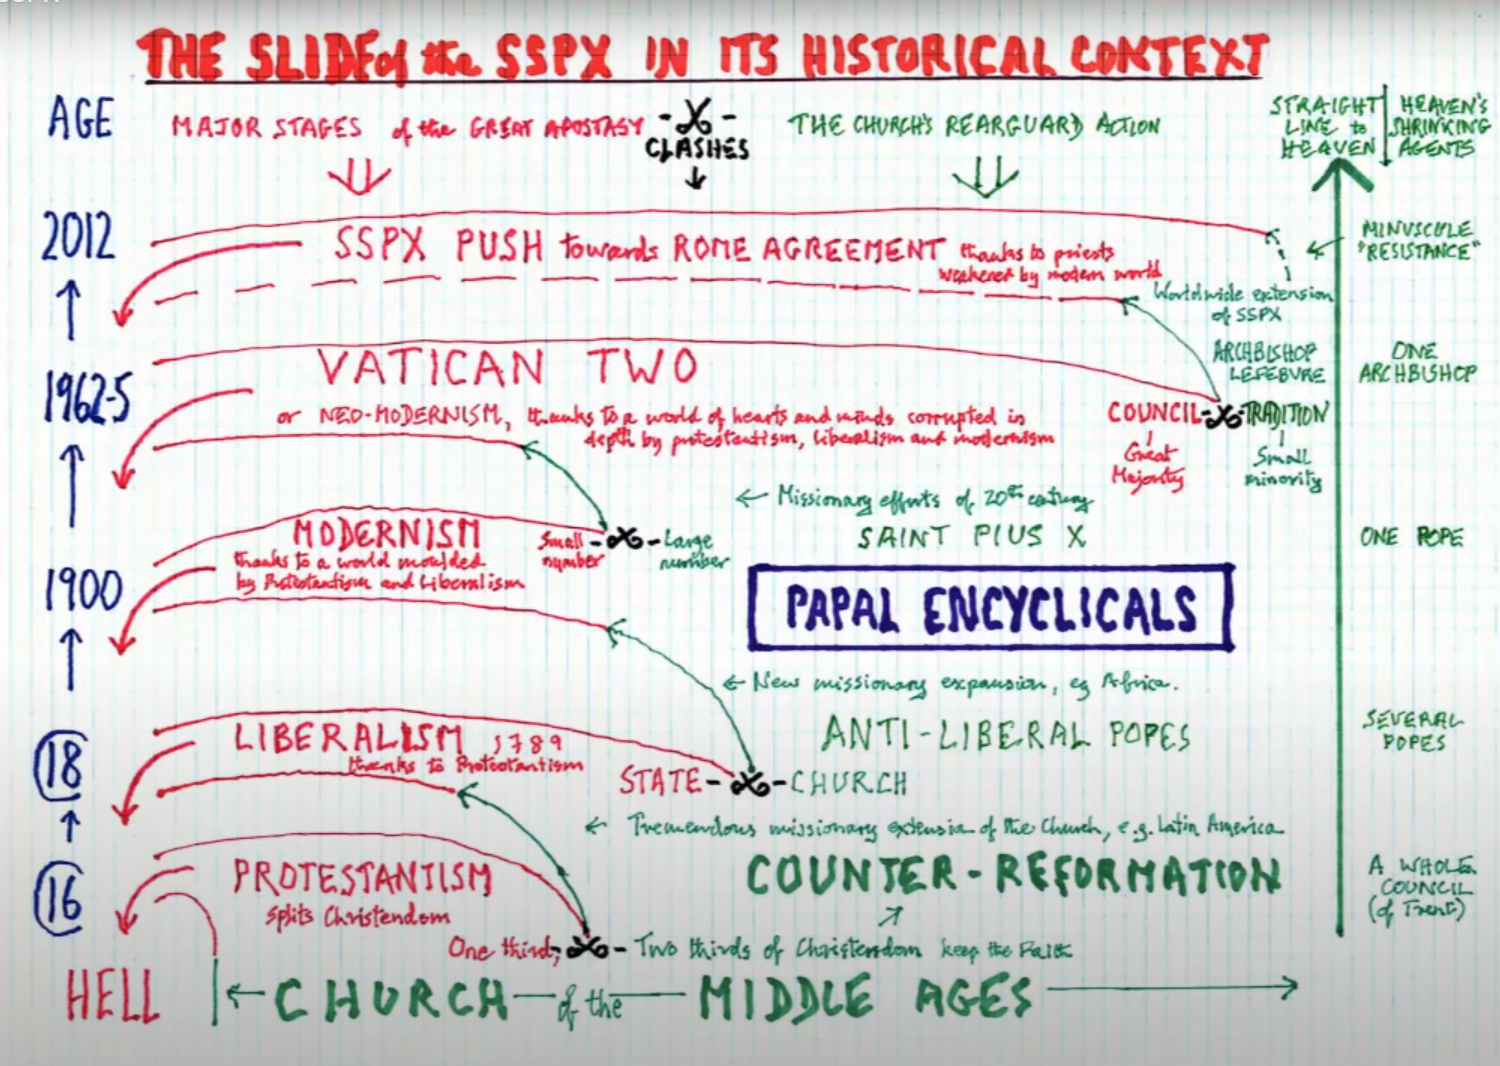 THE SLIDE of the SSPX IN ITS HISTORICAL CONTEXT
AGE
MAJOR STAGES of the GREAT APOSTASY
CLASHES
THE CHURCH'S REARGUARD ACTION
STRAIGHT
LINE to
HEAVEN
HEAVEN'S
SHRINKING
AGENTS
2012
SSPX PUSH towards ROME AGREEMENT thanks to priests
weakened by modern world
MINUSCULE
"RESISTANCE"
Worldwide extension
of SSPX
1962-5
VATICAN TWO
or NEO-MODERNISM, thanks to a world of hearts and minds corrupted in
depth by protestantism, liberalism and modernism
ARCHBISHOP
LEFEBVRE
COUNCIL - TRADITION
Great
Majority
Small
minority
ONE
ARCHBISHOP
← Missionary efforts of 20th century
SAINT PIUS X
ONE POPE
1900
MODERNISM
thanks to a world moulded
by Protestantism and Liberalism
Small
number
Large
number
PAPAL ENCYCLICALS
← New missionary expansion, eg Africa.
ANTI-LIBERAL POPES
SEVERAL
POPES
18
LIBERALISM 1789
thanks to Protestantism
STATE - CHURCH
← Tremendous missionary extension of the Church, e.g. Latin America
COUNTER-REFORMATION
A WHOLE
COUNCIL
(of Trent)
16
PROTESTANTISM
splits Christendom
One third, - Two thirds of Christendom keep the Faith
HELL
← CHURCH of the MIDDLE AGES →